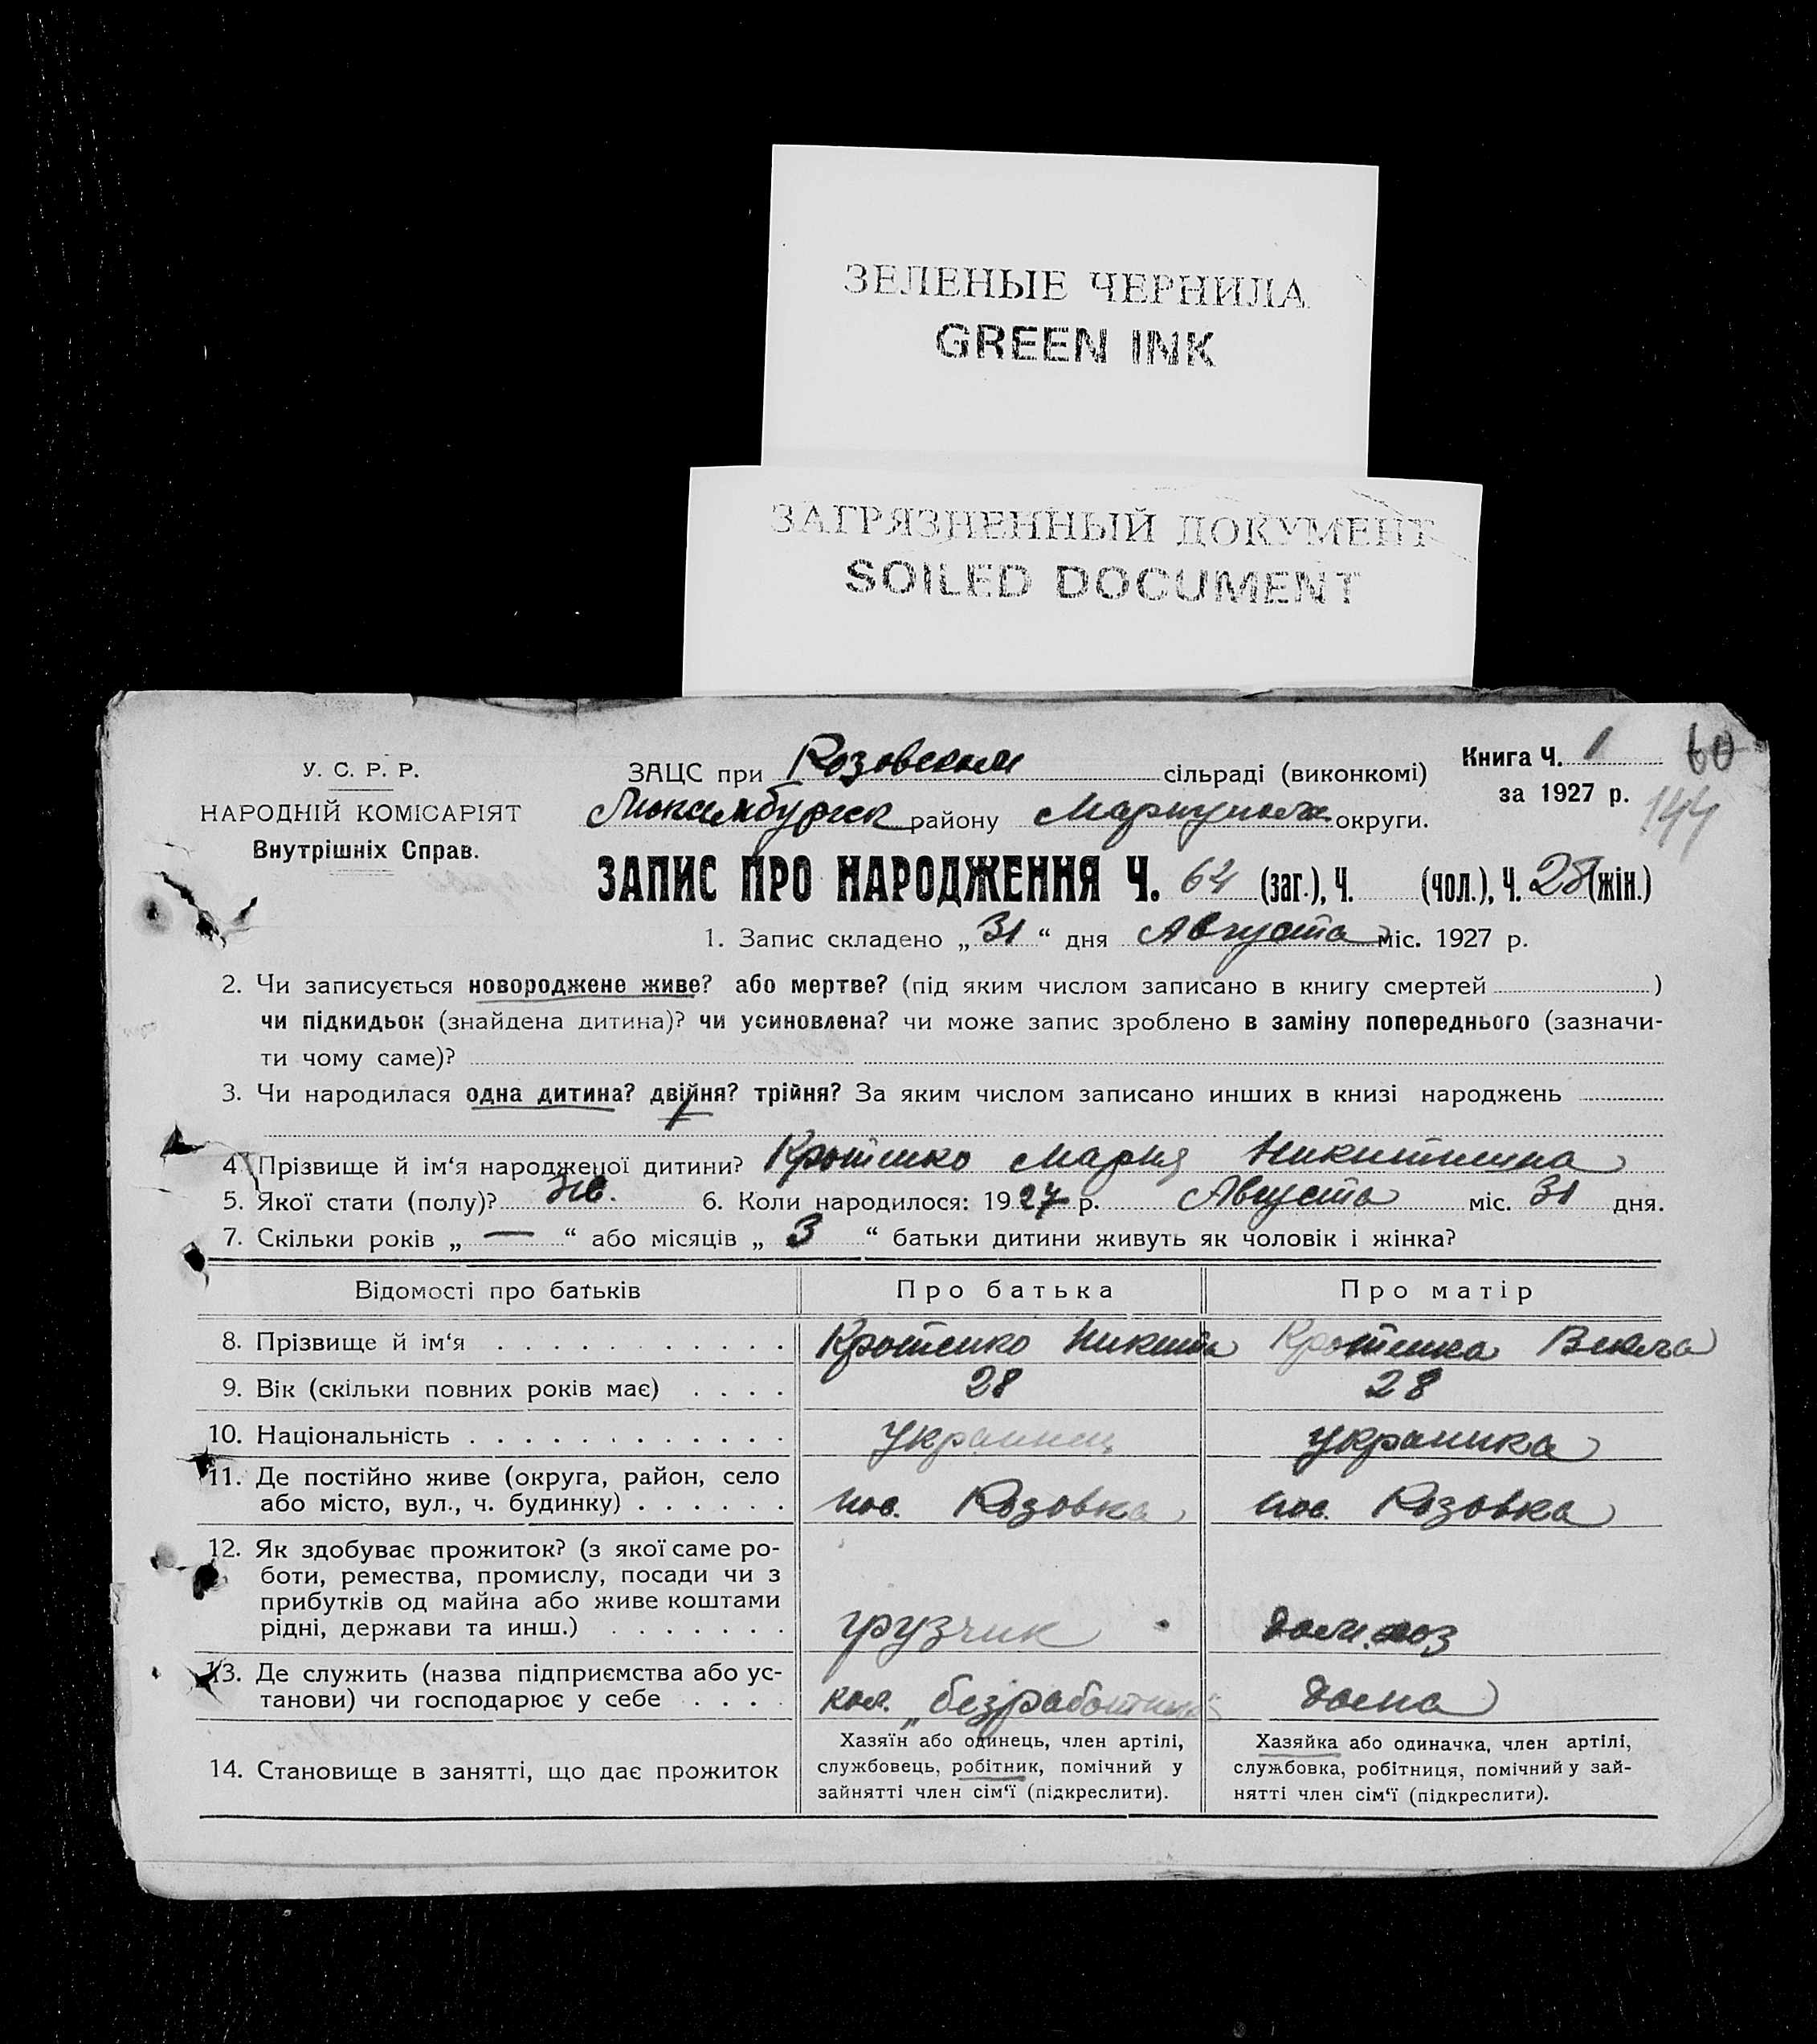 ЗЕЛЕНЫЕ ЧЕРНИЛА
GREEN INK
ЗАГРЯЗНЕННЫЙ ДОКУМЕНТ
SOILED DOCUMENT
У. С. Р. Р.
НАРОДНІЙ КОМІСАРІЯТ
Внутрішніх Справ.
Книга Ч. 1
60
за 1927 р.
144
ЗАЦС при Розовском сільраді (виконкомі)
району округи.
ЗАПИС ПРО НАРОДЖЕННЯ Ч. 64 (заг.), Ч. (чол.), Ч. 28 (жін.)
1. Запис складено „31“ дня Августа міс. 1927 р.
2. Чи записується новороджене живе? або мертве? (під яким числом записано в книгу смертей )
чи підкидьок (знайдена дитина)? чи усиновлена? чи може запис зроблено в заміну попереднього (зазначи-
ти чому саме)?
3. Чи народилася одна дитина? двійня? трійня? За яким числом записано инших в книзі народжень
4. Прізвище й ім‘я народженої дитини? Кротенко Мария Никитична
5. Якої стати (полу)? жв. 6. Коли народилося: 1927 р. Августа міс. 31 дня.
7. Скільки років „ — “ або місяців „ 3 “ батьки дитини живуть як чоловік і жінка?
Відомості про батьків Про батька Про матір
8. Прізвище й ім‘я Кротенко Никита Кротенка
9. Вік (скільки повних років має) 28 28
10. Національність украинец украинка
11. Де постійно живе (округа, район, село
або місто, вул., ч. будинку) пос. Розовка пос. Розовка
12. Як здобуває прожиток? (з якої саме ро-
боти, ремества, промислу, посади чи з
прибутків од майна або живе коштами
рідні, держави та инш.) грузчик дом. хоз
13. Де служить (назва підприємства або ус-
танови) чи господарює у себе кол. дома
14. Становище в занятті, що дає прожиток
Хазяїн або одинець, член артілі,
службовець, робітник, помічний у
зайнятті член сім‘ї (підкреслити).
Хазяйка або одиначка, член артілі,
службовка, робітниця, помічний у зай-
нятті член сім‘ї (підкреслити).